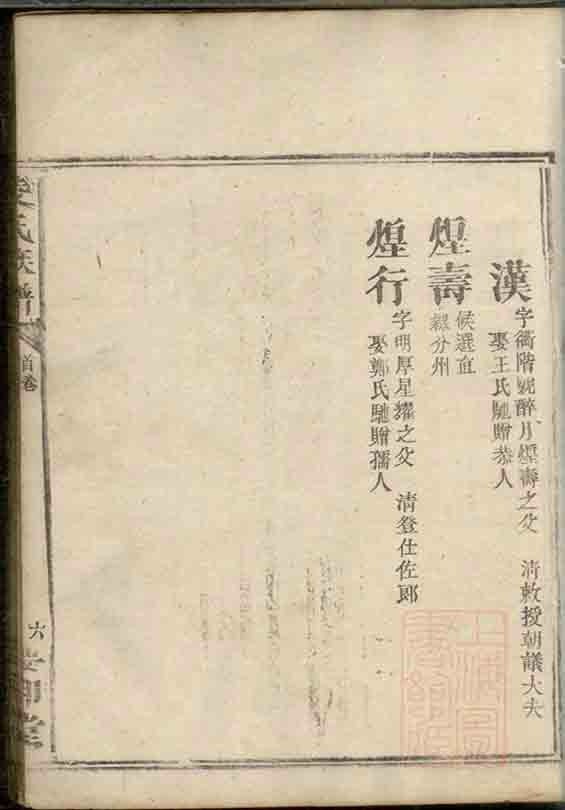 漢
字衢階號醉月煌壽之父 清敕授朝議大夫
娶王氏馳贈恭人
煌壽
候選直
隸分州
煌行
字明厚星耀之父 清登仕佐郎
娶鄭氏馳贈孺人
氏族譜
首卷
六
堂